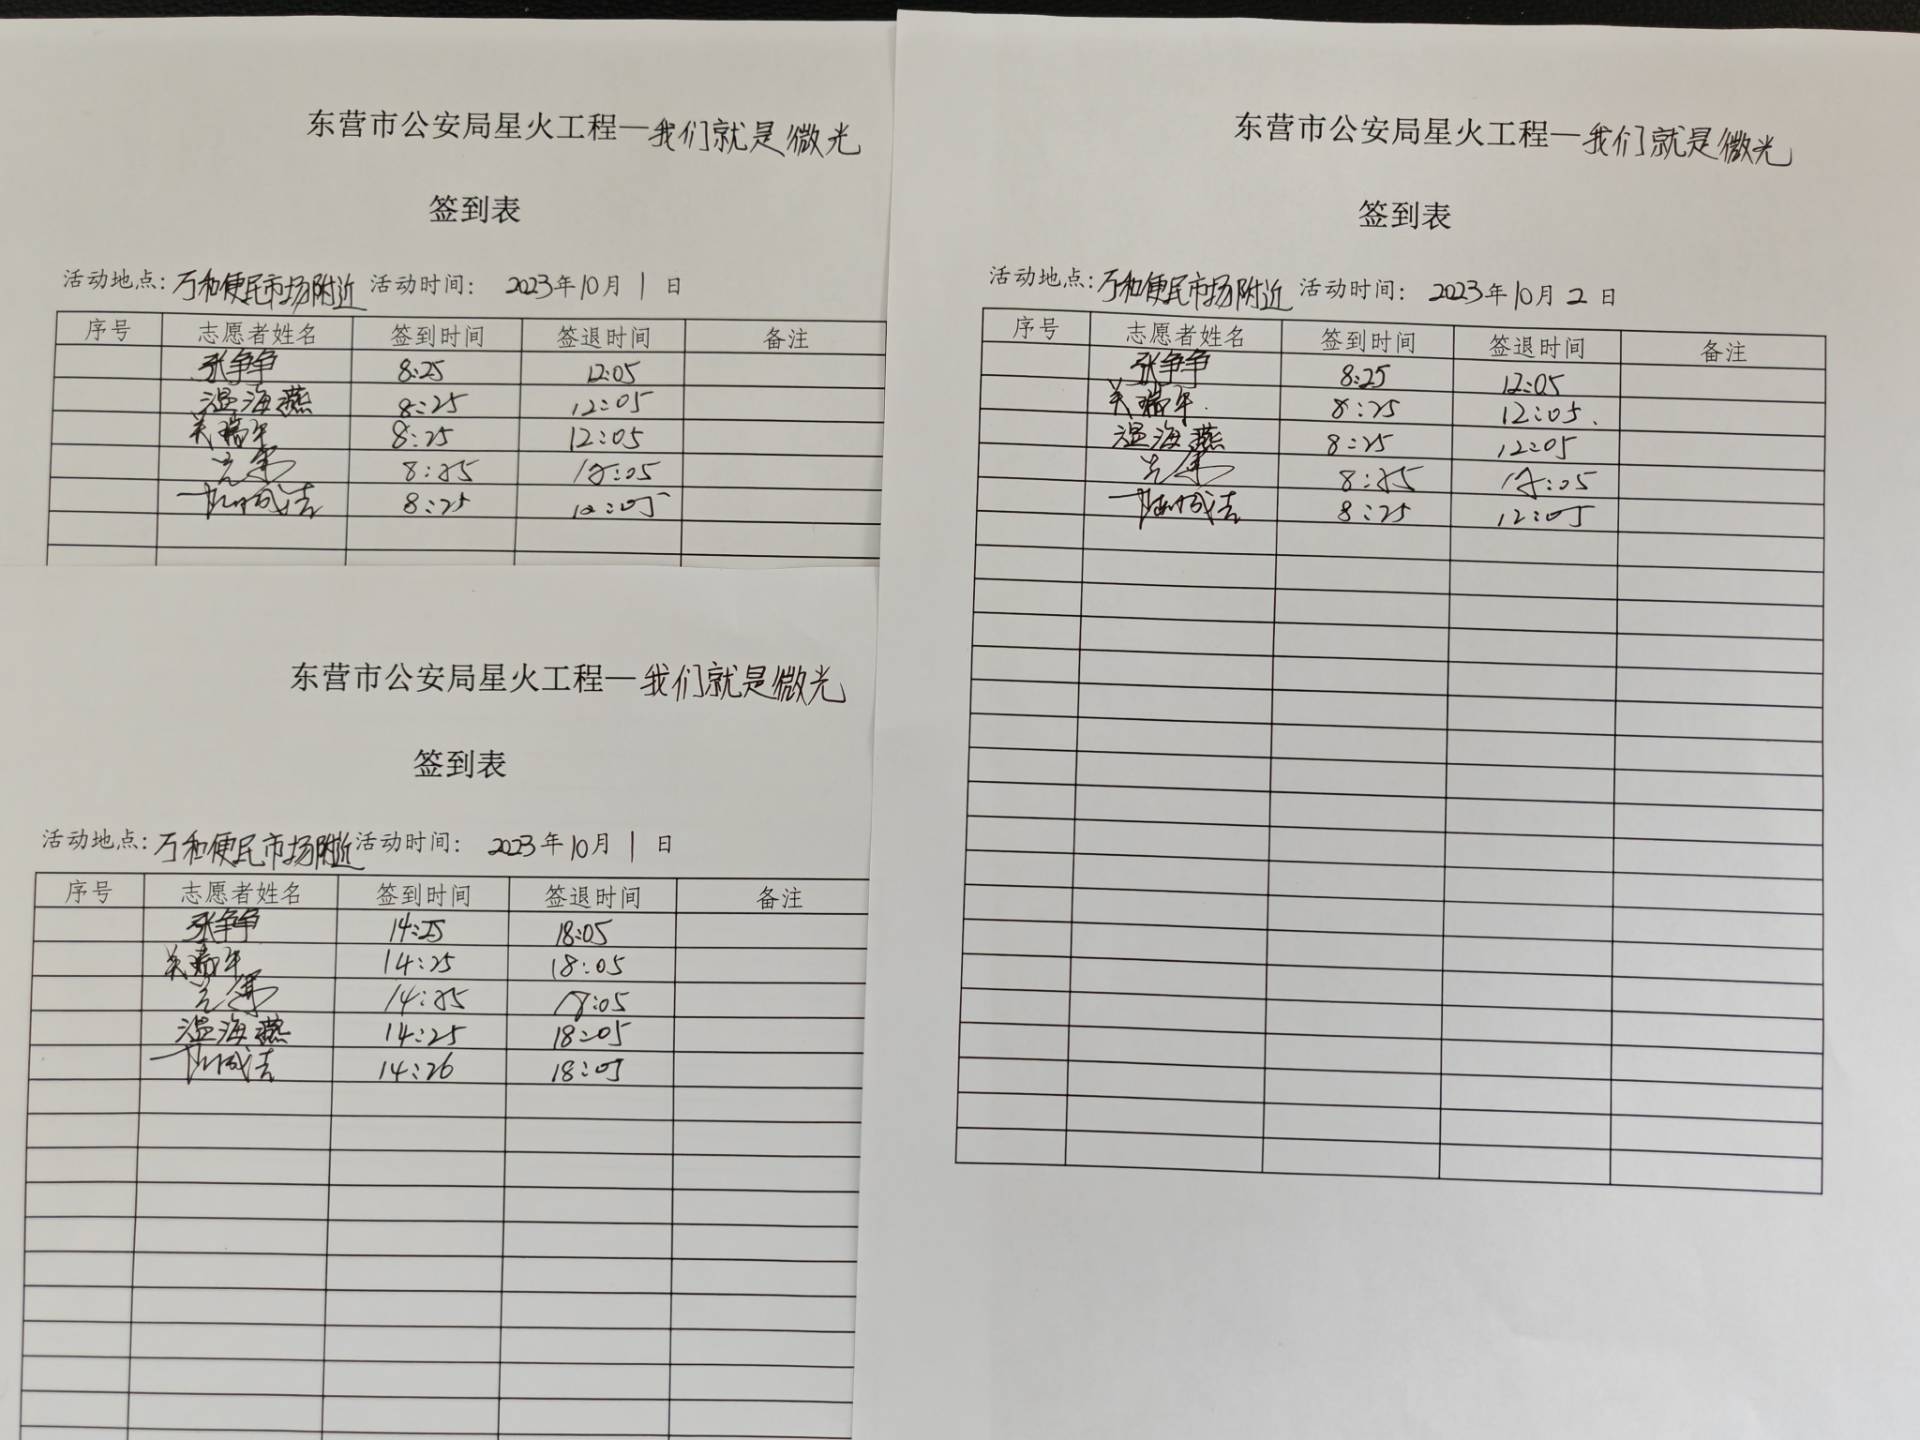 东营市公安局星火工程—我们就是微光
签到表
活动地点：万和便民市场附近 活动时间： 2023年10月1日
序号 志愿者姓名 签到时间 签退时间 备注
张争争 8:25 12:05
温海燕 8:25 12:05
关瑞年 8:25 12:05
8:25 12:05
8:25 12:05
东营市公安局星火工程—我们就是微光
签到表
活动地点：万和便民市场附近 活动时间： 2023年10月1日
序号 志愿者姓名 签到时间 签退时间 备注
张争争 14:25 18:05
关瑞年 14:25 18:05
14:25 18:05
温海燕 14:25 18:05
14:26 18:05
东营市公安局星火工程—我们就是微光
签到表
活动地点：万和便民市场附近 活动时间： 2023年10月2日
序号 志愿者姓名 签到时间 签退时间 备注
张争争 8:25 12:05
关瑞年 8:25 12:05.
温海燕 8:25 12:05
8:25 12:05
8:25 12:05